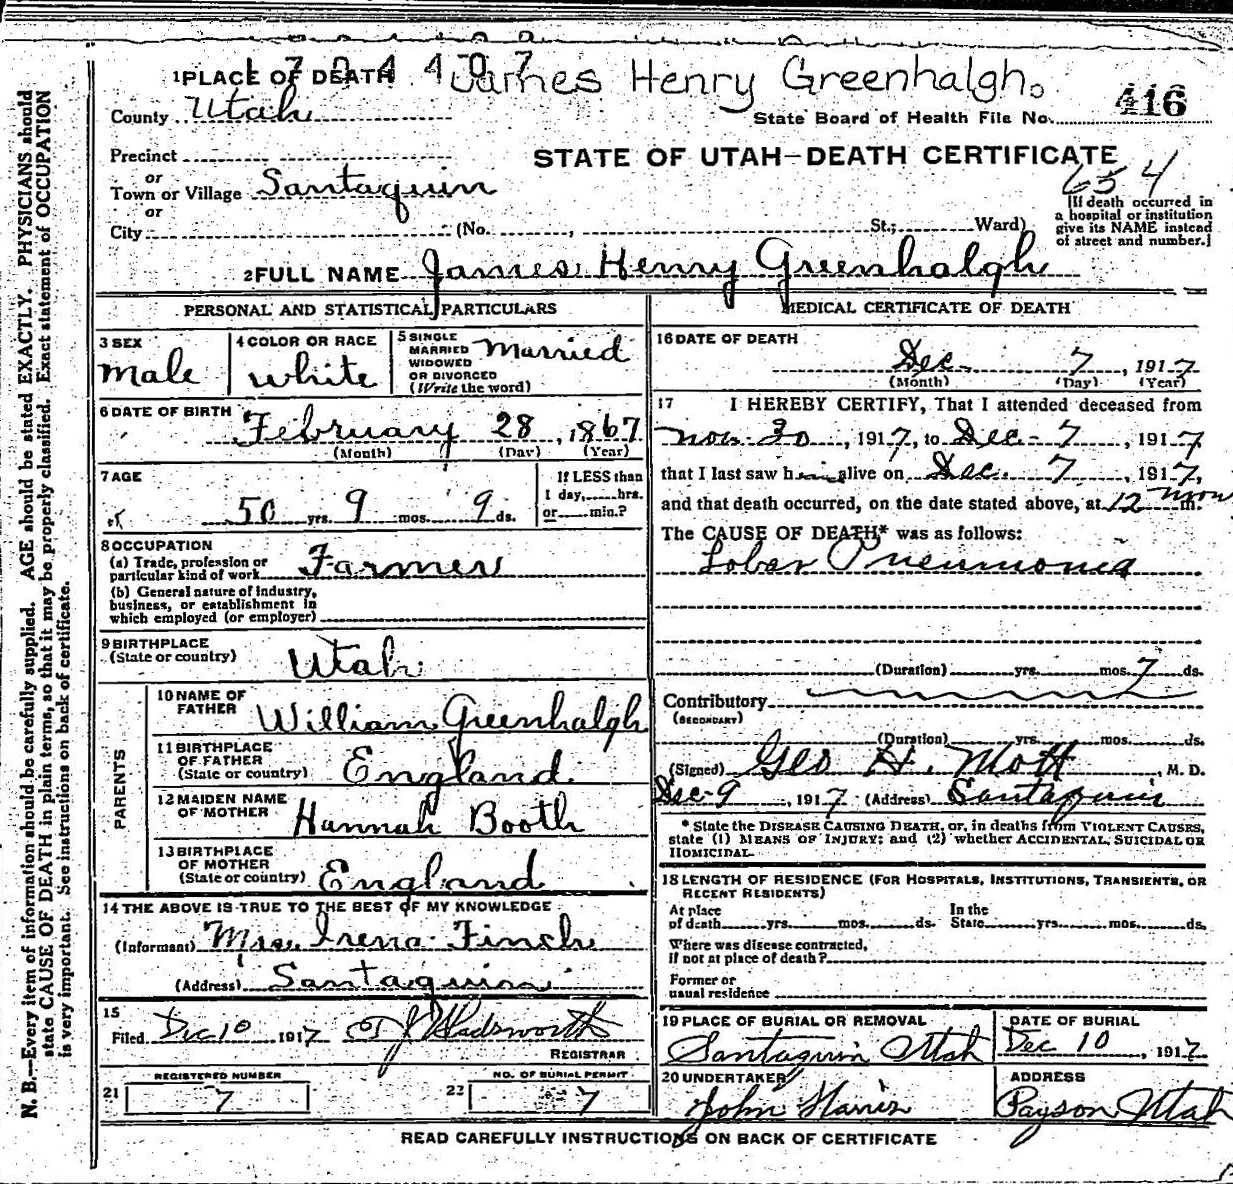 1704407
James Henry Greenhalgh.
1 PLACE OF DEATH
416
County Utah
State Board of Health File No.
Precinct
STATE OF UTAH—DEATH CERTIFICATE
or
654
Town or Village Santaquin
or
City (No. , St.; Ward)
[If death occurred in
a hospital or institution
give its NAME instead
of street and number.]
2 FULL NAME James Henry Greenhalgh
PERSONAL AND STATISTICAL PARTICULARS
3 SEX
Male
4 COLOR OR RACE
White
5 SINGLE
MARRIED
WIDOWED
OR DIVORCED
(Write the word)
Married
6 DATE OF BIRTH
February 28, 1867
(Month) (Day) (Year)
7 AGE
50 yrs. 9 mos. 9 ds.
If LESS than
1 day, hrs.
or min.?
8 OCCUPATION
(a) Trade, profession or
particular kind of work Farmer
(b) General nature of industry,
business, or establishment in
which employed (or employer)
9 BIRTHPLACE
(State or country) Utah
PARENTS
10 NAME OF
FATHER William Greenhalgh
11 BIRTHPLACE
OF FATHER
(State or country) England
12 MAIDEN NAME
OF MOTHER Hannah Booth
13 BIRTHPLACE
OF MOTHER
(State or country) England
14 THE ABOVE IS TRUE TO THE BEST OF MY KNOWLEDGE
(Informant) Mrs. Irena Finch
(Address) Santaquin
15
Filed Dec 10 1917 Wadsworth
REGISTRAR
21 REGISTERED NUMBER
7
22 NO. OF BURIAL PERMIT
7
MEDICAL CERTIFICATE OF DEATH
16 DATE OF DEATH
Dec. 7, 1917
(Month) (Day) (Year)
17 I HEREBY CERTIFY, That I attended deceased from
Nov. 30, 1917, to Dec - 7, 1917,
that I last saw him alive on Dec. 7, 1917,
and that death occurred, on the date stated above, at 12 Noon m.
The CAUSE OF DEATH* was as follows:
Lobar Pneumonia
(Duration) yrs. mos. 7 ds.
Contributory
(SECONDARY)
(Duration) yrs. mos. ds.
(Signed) Geo H. Mott, M. D.
Dec-9, 1917 (Address) Santaquin
* State the DISEASE CAUSING DEATH, or, in deaths from VIOLENT CAUSES,
state (1) MEANS OF INJURY; and (2) whether ACCIDENTAL, SUICIDAL OR
HOMICIDAL.
18 LENGTH OF RESIDENCE (FOR HOSPITALS, INSTITUTIONS, TRANSIENTS, OR
RECENT RESIDENTS)
At place
of death yrs. mos. ds.
In the
State yrs. mos. ds.
Where was disease contracted,
if not at place of death?
Former or
usual residence
19 PLACE OF BURIAL OR REMOVAL
Santaquin Utah
DATE OF BURIAL
Dec 10, 1917
20 UNDERTAKER
John Harris
ADDRESS
Payson Utah
READ CAREFULLY INSTRUCTIONS ON BACK OF CERTIFICATE
N. B.—Every item of information should be carefully supplied. AGE should be stated EXACTLY. PHYSICIANS should
state CAUSE OF DEATH in plain terms, so that it may be properly classified. Exact statement of OCCUPATION
is very important. See instructions on back of certificate.